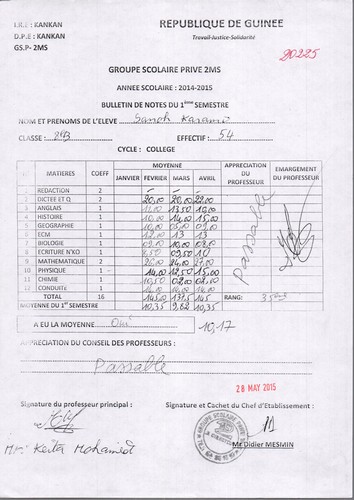 I.R.E : KANKAN
D.P.E : KANKAN
GS.P- 2MS
REPUBLIQUE DE GUINEE
Travail-Justice-Solidarité
20225
GROUPE SCOLAIRE PRIVE 2MS
ANNEE SCOLAIRE : 2014-2015
BULLETIN DE NOTES DU 1ème SEMESTRE
NOM ET PRENOMS DE L'ELEVE Sanoh
CLASSE : EFFECTIF : 54
CYCLE : COLLEGE
N° MATIERES COEFF MOYENNE APPRECIATION DU PROFESSEUR EMARGEMENT DU PROFESSEUR
JANVIER FEVRIER MARS AVRIL
1 REDACTION 2
2 DICTEE ET Q 2 20,00 20,00 22,00
3 ANGLAIS 1 11,00 13,50 10,00
4 HISTOIRE 1 10,00 14,00 15,00
5 GEOGRAPHIE 1 10,00 05,00 09,00
6 ECM 1 12,00 13 13
7 BIOLOGIE 1 09,00 10,00 08,00
8 ECRITURE N'KO 1 8,50 09,50 10
9 MATHEMATIQUE 2 26,00 24,00 27,00
10 PHYSIQUE 1 14,00 12,50 15,00
11 CHIMIE 1 10,50 02,00 02,00
12 CONDUITE 1 14,00 14,00 14,00
Passable
TOTAL 16 145,00 137,5 145 RANG: 35
MOYENNE DU 1er SEMESTRE 10,35 9,82 10,35
A EU LA MOYENNE Oui 10,17
APPRECIATION DU CONSEIL DES PROFESSEURS :
Passable
28 MAY 2015
Signature du professeur principal : Signature et Cachet du Chef d'Etablissement :
Mr Keita Mohamed
Mr Didier MESMIN